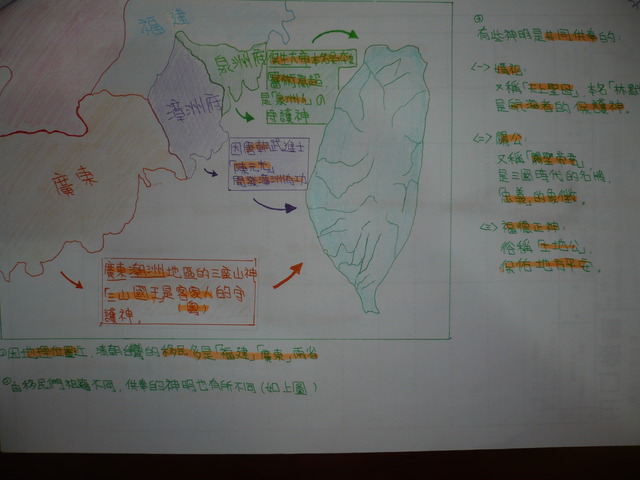 福建
泉州府
保生大帝本名吳夲
醫術高超,
是「泉州人」の
守護神
漳州府
因唐朝武進士
「陳元光」
開發漳洲有功
廣東
廣東潮洲地區的三座山神
「三山國王是客家人的守
(粵)
護神.
因地理位置近,清朝台灣的移民多是「福建」「廣東」兩省
因移民們祖籍不同,供奉的神明也有所不同(如上圖)
有些神明是共同供奉的:
<一> 媽祖:
又稱「天上聖母」,本名「林默
是航海者的保護神.
<二> 關公
又稱「關聖帝君」
是三國時代的名將,
「忠義」的象徵.
<三> 福德正神:
俗稱土地公,
保佑地方平安.